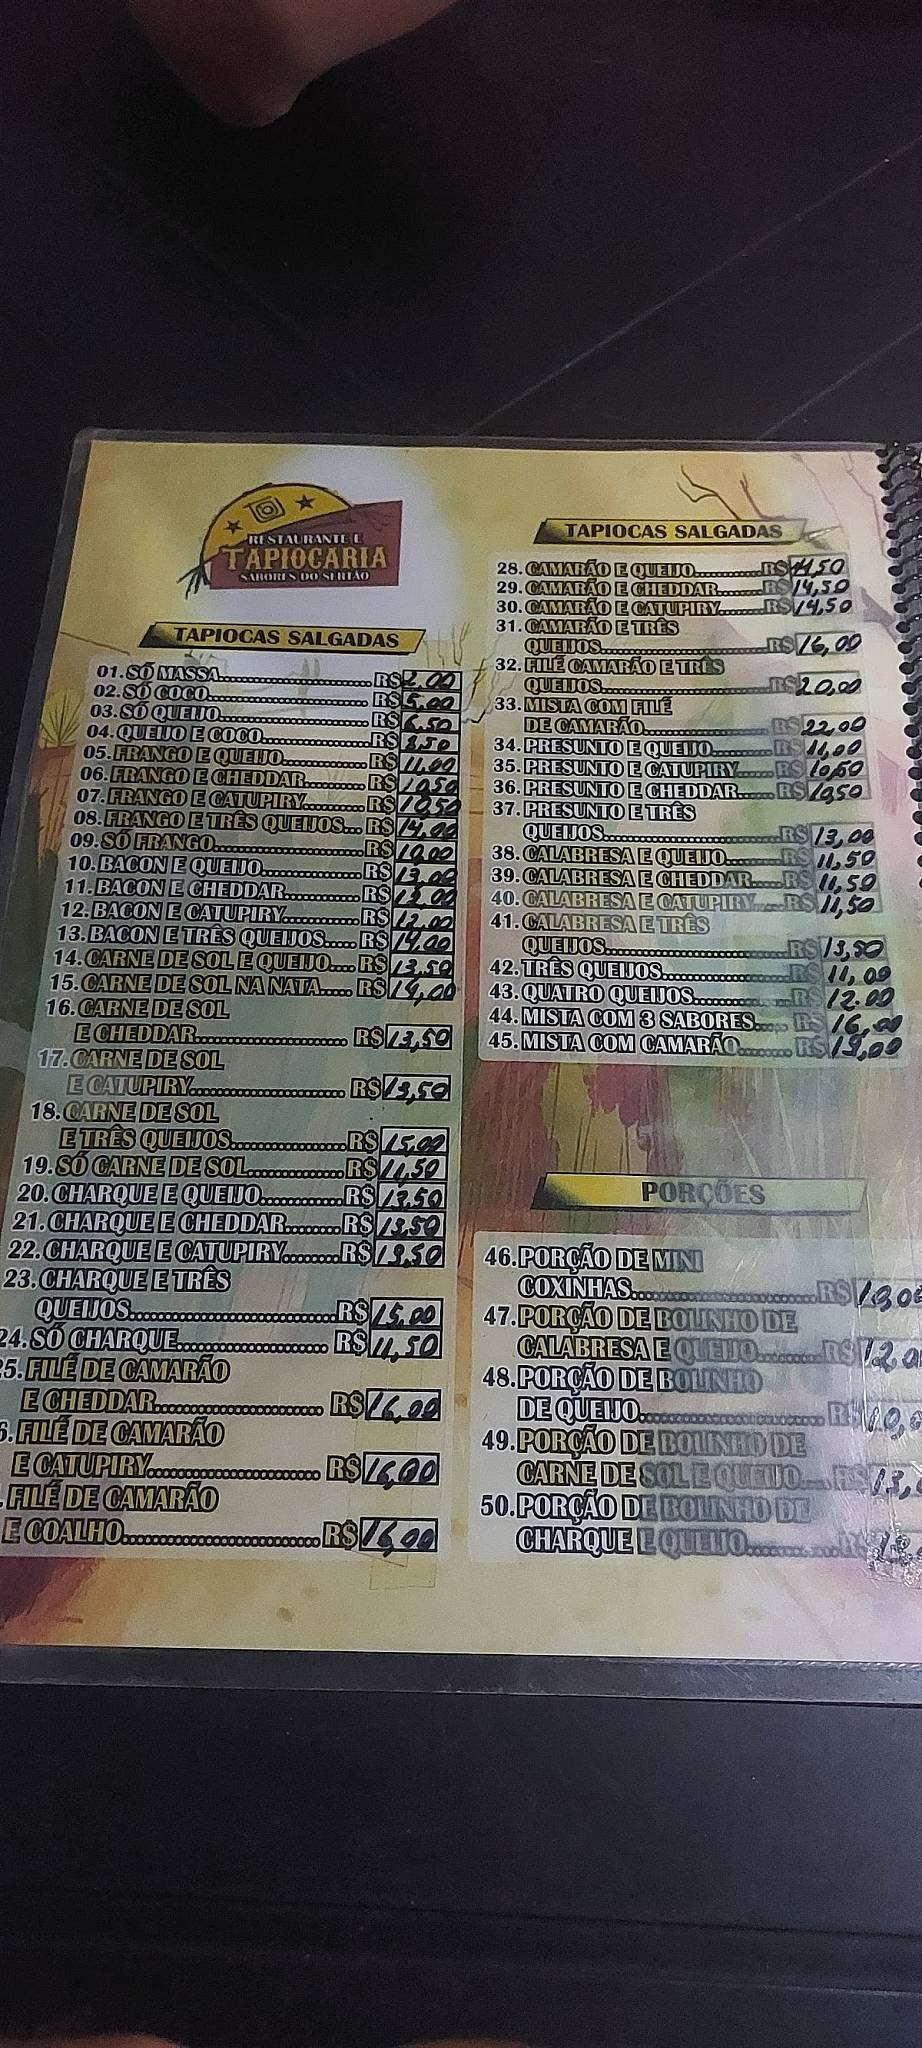 RESTAURANTE E
TAPIOCARIA
SABORES DO SERTÃO
TAPIOCAS SALGADAS
01. SÓ MASSA R$ 2,00
02. SÓ COCO R$ 5,00
03. SÓ QUEIJO R$ 6,50
04. QUEIJO E COCO R$ 8,50
05. FRANGO E QUEIJO R$ 11,00
06. FRANGO E CHEDDAR R$ 10,50
07. FRANGO E CATUPIRY R$ 10,50
08. FRANGO E TRÊS QUEIJOS R$ 14,00
09. SÓ FRANGO R$ 10,00
10. BACON E QUEIJO R$ 13,00
11. BACON E CHEDDAR R$ 12,00
12. BACON E CATUPIRY R$ 12,00
13. BACON E TRÊS QUEIJOS R$ 14,00
14. CARNE DE SOL E QUEIJO R$ 13,50
15. CARNE DE SOL NA NATA R$ 14,00
16. CARNE DE SOL
E CHEDDAR R$ 13,50
17. CARNE DE SOL
E CATUPIRY R$ 13,50
18. CARNE DE SOL
E TRÊS QUEIJOS R$ 15,00
19. SÓ CARNE DE SOL R$ 11,50
20. CHARQUE E QUEIJO R$ 13,50
21. CHARQUE E CHEDDAR R$ 13,50
22. CHARQUE E CATUPIRY R$ 13,50
23. CHARQUE E TRÊS
QUEIJOS R$ 15,00
24. SÓ CHARQUE R$ 11,50
5. FILÉ DE CAMARÃO
E CHEDDAR R$ 16,00
6. FILÉ DE CAMARÃO
E CATUPIRY R$ 16,00
. FILÉ DE CAMARÃO
E COALHO R$ 16,00
TAPIOCAS SALGADAS
28. CAMARÃO E QUEIJO R$ 14,50
29. CAMARÃO E CHEDDAR R$ 14,50
30. CAMARÃO E CATUPIRY R$ 14,50
31. CAMARÃO E TRÊS
QUEIJOS R$ 16,00
32. FILÉ CAMARÃO E TRÊS
QUEIJOS R$ 20,00
33. MISTA COM FILÉ
DE CAMARÃO R$ 22,00
34. PRESUNTO E QUEIJO R$ 11,00
35. PRESUNTO E CATUPIRY R$ 10,50
36. PRESUNTO E CHEDDAR R$ 10,50
37. PRESUNTO E TRÊS
QUEIJOS R$ 13,00
38. CALABRESA E QUEIJO R$ 11,50
39. CALABRESA E CHEDDAR R$ 11,50
40. CALABRESA E CATUPIRY R$ 11,50
41. CALABRESA E TRÊS
QUEIJOS R$ 13,50
42. TRÊS QUEIJOS R$ 11,00
43. QUATRO QUEIJOS R$ 12.00
44. MISTA COM 3 SABORES R$ 16,00
45. MISTA COM CAMARÃO R$ 19,00
PORÇÕES
46. PORÇÃO DE MINI
COXINHAS R$ 10,00
47. PORÇÃO DE BOLINHO DE
CALABRESA E QUEIJO R$ 12,0
48. PORÇÃO DE BOLINHO
DE QUEIJO R$ 10,0
49. PORÇÃO DE BOLINHO DE
CARNE DE SOL E QUEIJO R$ 13,
50. PORÇÃO DE BOLINHO DE
CHARQUE E QUEIJO R$ 13.